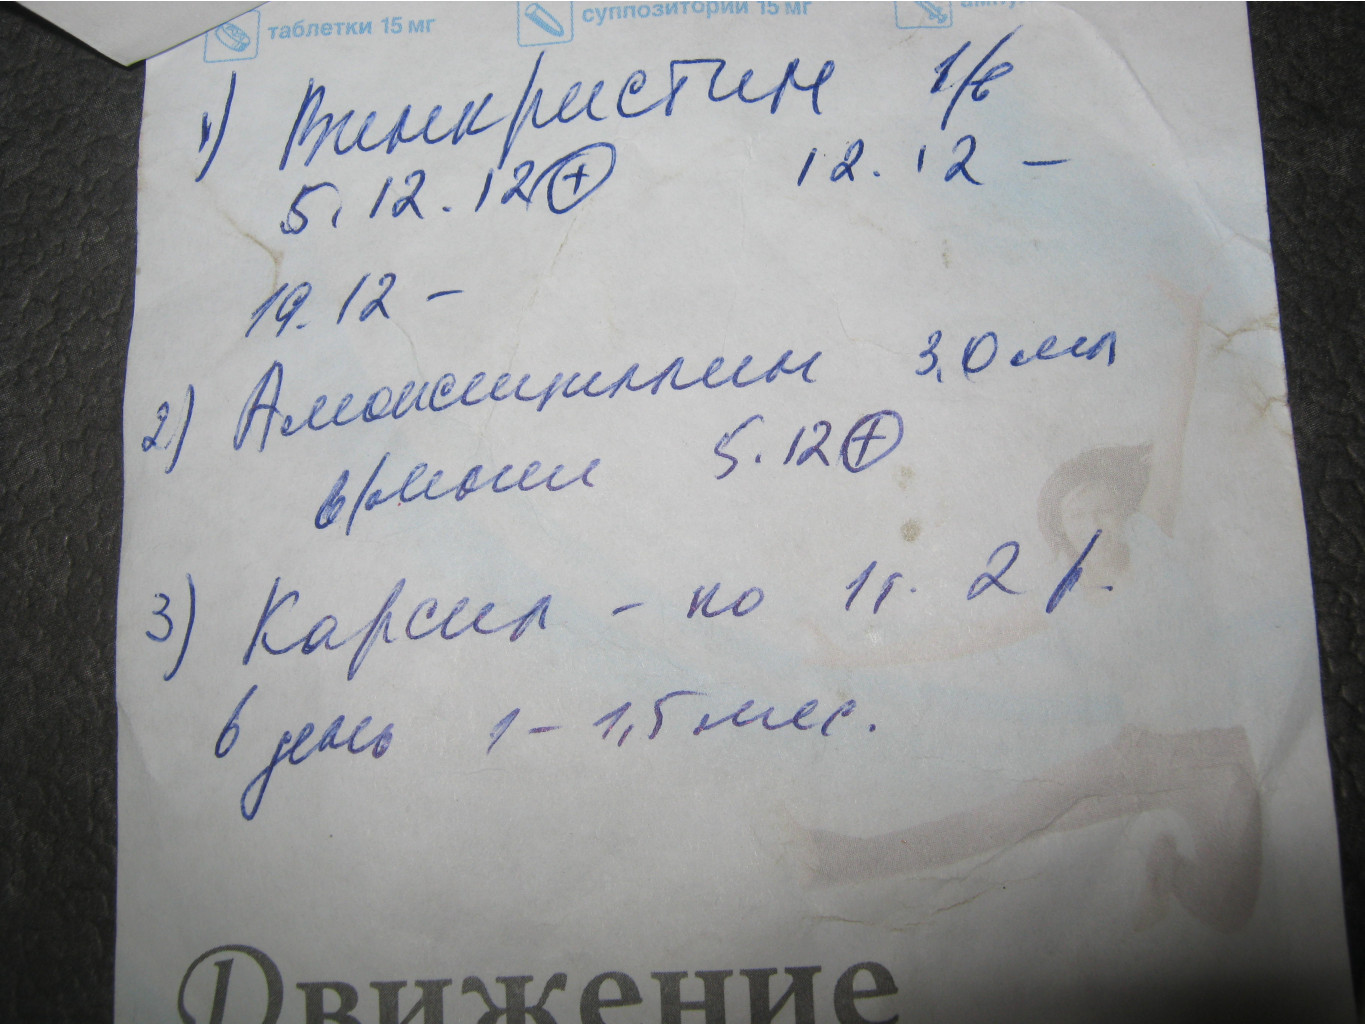 таблетки 15 мг суппозитории 15 мг
1) Винкристин 1/в
5.12.12 + 12.12 –
19.12 –
2) Амоксициллин 3,0 мл
в/мышц 5.12 +
3) Карсил – по 1т. 2 р.
в день 1 – 1,5 мес.
Движение